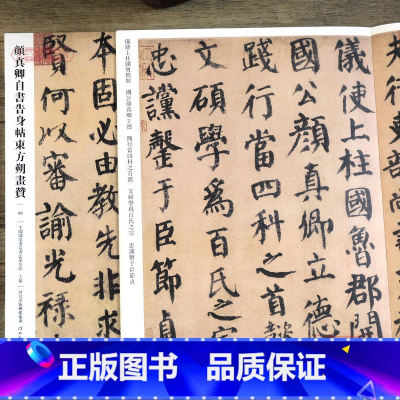 儀使上柱國魯郡開
國公顏真卿立德
踐行當四科之首
文碩學為百氏之
忠讜罄于臣節貞
儀使上柱國魯郡開 國公顏真卿立德 踐行當四科之首懿 文碩學爲百氏之宗 忠讜罄于臣節貞
本固必由教先非求
賢何以審諭光祿
顏真卿自書告身帖東方朔畫贊